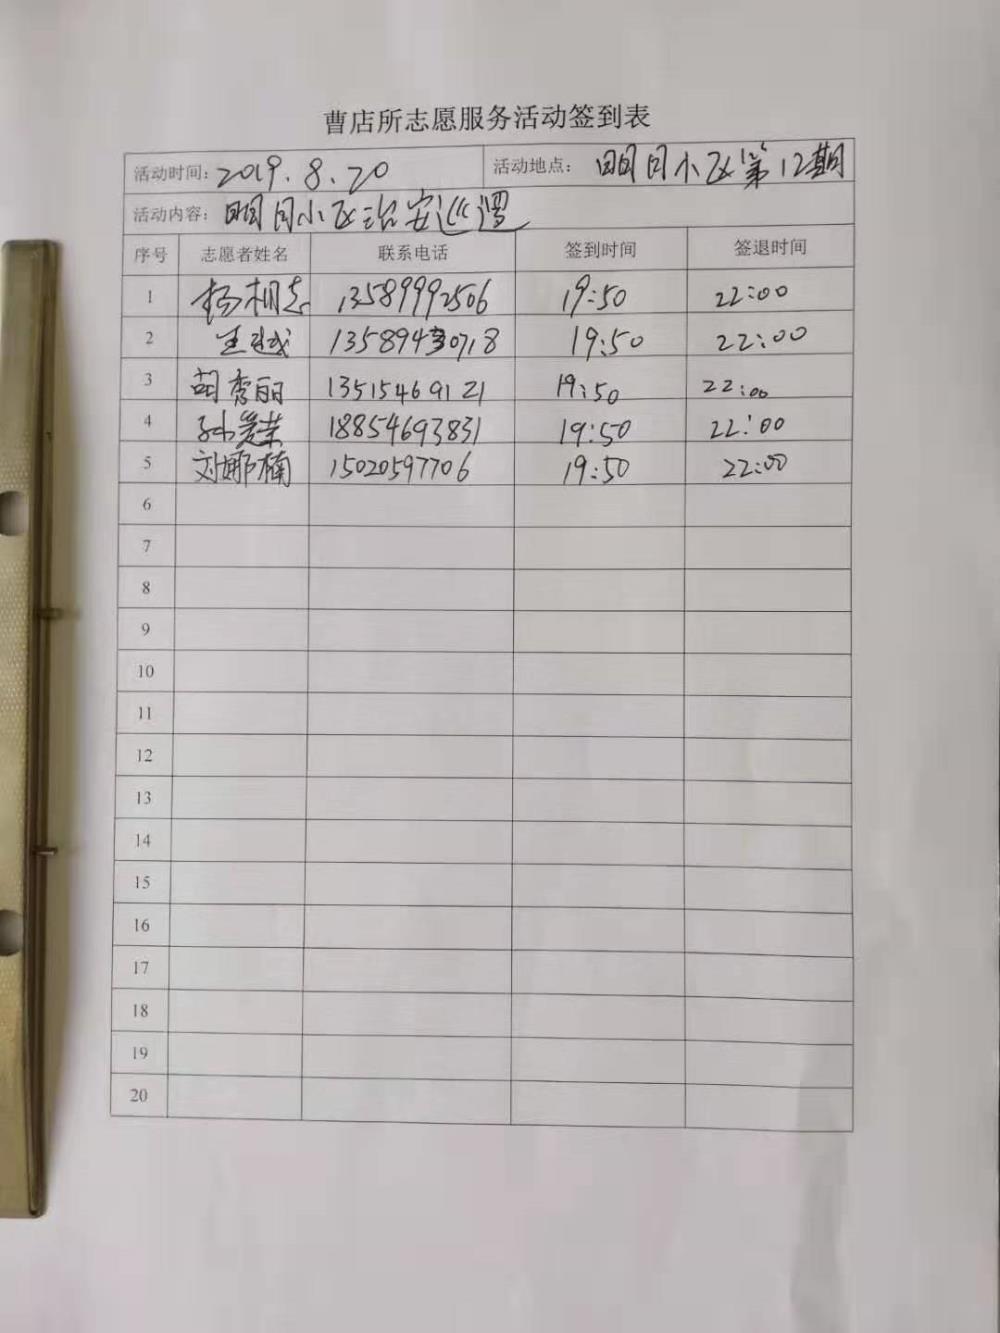 曹店所志愿服务活动签到表
活动时间: 2019.8.20 活动地点: 明月小区第12期
活动内容: 明月小区治安巡逻
序号 志愿者姓名 联系电话 签到时间 签退时间
1 杨相志 13589992506 19:50 22:00
2 王越 13589430718 19:50 22:00
3 胡秀丽 13515469121 19:50 22:00
4 孙爱荣 18854693831 19:50 22:00
5 刘娜楠 15020597706 19:50 22:00
6
7
8
9
10
11
12
13
14
15
16
17
18
19
20